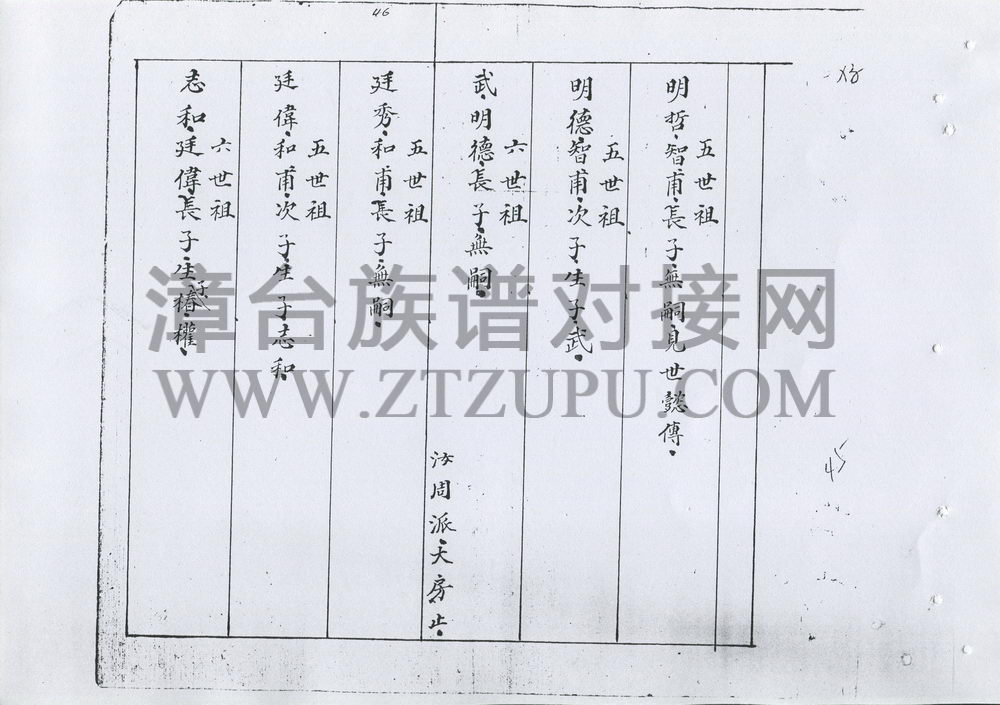 46
五世祖
明哲智甫長子無嗣見世懿傳
五世祖
明德智甫次子生子武
六世祖
武明德長子無嗣
汝周派大房止
五世祖
廷秀和甫長子無嗣
五世祖
廷偉和甫次子生子志和
六世祖
志和廷偉長子生子椿權
45
漳台族谱对接网
WWW.ZTZUPU.COM